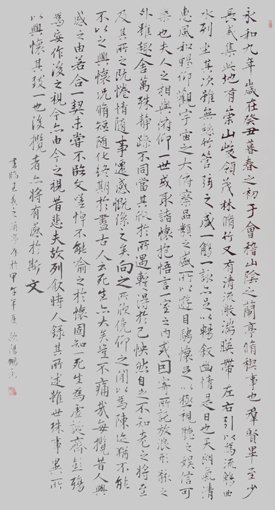 永和九年歲在癸丑暮春之初于會稽山陰之蘭亭脩稧事也羣賢畢至少
長咸集此地有崇山峻領茂林脩竹又有清流激湍暎帶左右引以為流觴曲
水列坐其次雖無絲竹管弦之盛一觴一詠亦足以暢敘幽情是日也天朗氣清
惠風和暢仰觀宇宙之大俯察品類之盛所以遊目騁懷足以極視聽之娛信可
樂也夫人之相與俯仰一世或取諸懷抱悟言一室之內或因寄所託放浪形骸之
外雖趣舍萬殊靜躁不同當其欣於所遇暫得於己怏然自足不知老之將至
及其所之既惓情隨事遷感慨係之矣向之所欣俛仰之間以為陳迹猶不能
不以之興懷況脩短隨化終期於盡古人云死生亦大矣豈不痛哉每攬昔人興
感之由若合一契未嘗不臨文嗟悼不能喻之於懷固知一死生為虛誕齊彭殤
為妄作後之視今亦由今之視昔悲夫故列敘時人錄其所述雖世殊事異所
以興懷其致一也後攬者亦將有感於斯文